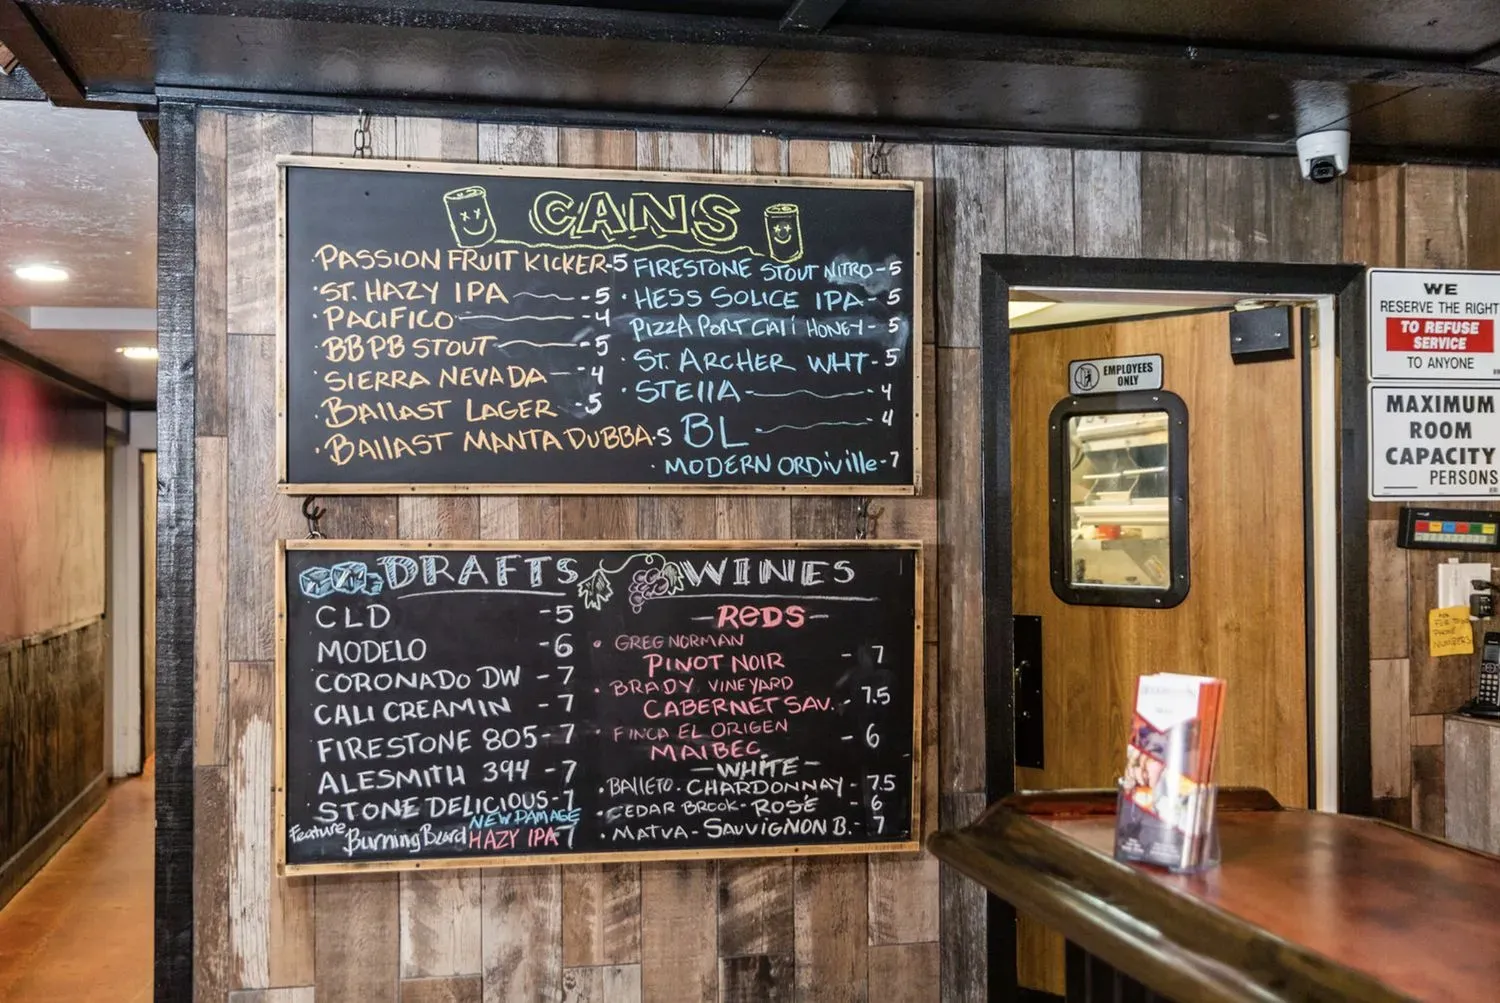 CANS
PASSION FRUIT KICKER-5
·ST. HAZY IPA -5
·PACIFICO -4
·BBPB STOUT -5
·SIERRA NEVADA -4
·BALLAST LAGER -5
·BALLAST MANTA DUBBA·5
FIRESTONE STOUT NITRO-5
·HESS SOLICE IPA-5
PIZZA PORT CALI HONEY-5
·ST. ARCHER WHT-5
·STELLA 4
·BL 4
·MODERN ORDIVILLE-7
DRAFTS
CLD -5
MODELO -6
CORONADO DW -7
CALI CREAMIN -7
FIRESTONE 805-7
ALESMITH 394 -7
STONE DELICIOUS-7
NEW DAMAGE
Feature Burning Beard HAZY IPA 7
WINES
-REDS-
·GREG NORMAN
PINOT NOIR -7
·BRADY VINEYARD
CABERNET SAV. -7.5
·FINCA EL ORIGEN
MALBEC -6
-WHITE-
·BALLETO-CHARDONNAY-7.5
·CEDAR BROOK-ROSÉ -6
·MATUA-SAUVIGNON B.-7
EMPLOYEES
ONLY
WE
RESERVE THE RIGHT
TO REFUSE
SERVICE
TO ANYONE
MAXIMUM
ROOM
CAPACITY
PERSONS
PHONE
NUMBERS